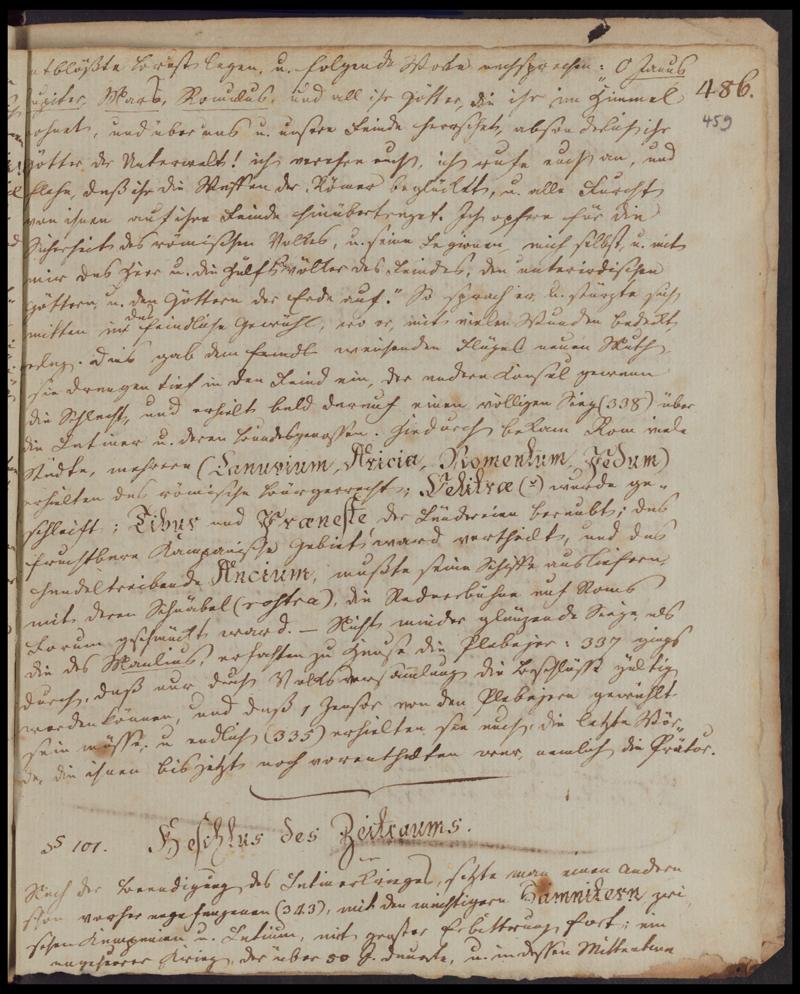 entblößte Brust legen, u. folgende Worte nachsprechen: "O Janus
Jupiter, Mars, Romulus, und all ihr Götter, die ihr im Himmel
486.
459
wohnet, und über uns u. unsere Feinde herrschet, absonderlich ihr
Götter der Unterwelt! ich verehre euch, ich rufe euch an, und
flehe, daß ihr die Waffen der Römer beglücket, u. alle Furcht
von ihnen auf ihre Feinde hinübertraget. Ich opfere für die
Sicherheit des römischen Volkes, u. seine Legionen mich selbst, u. mit
mir das Heer u. die Hülfsvölker des Feindes, den unterirdischen
Göttern, u. den Göttern der Erde auf." So sprach er, u. stürzte sich
mitten in das feindliche Gewühl, wo er, mit vielen Wunden bedeckt
erlag. Dies gab dem weichenden Flügel neuen Muth,
sie drangen tief in den Feind ein, der andere Konsul gewann
die Schlacht, und erhielt bald darauf einen völligen Sieg (338) über
die Latiner u. deren Bundesgenossen. Hiedurch bekam Rom viele
Städte, mehrere (Lanuvium, Aricia, Nomentum, Pedum)
erhielten das römische Bürgerrecht; Velitræ wurde ge-
schleift; Tibur und Præneste der Ländereien beraubt; das
fruchtbare Kampanische Gebiet ward vertheilt, und das
handeltreibende Ancium, mußte seine Schiffe ausliefern,
mit deren Schnäbel (rostra), die Rednerbühne auf Roms
Forum geschmückt ward. — Nicht minder glänzende Siege, als
die des Manlius, erfochten zu Hause die Plebejer: 337 gings
durch, daß nur durch Volksversamlung die Beschlüße gültig
werden können, und daß 1 Zensor von den Plebejern gewählt
sein müsse; u. endlich (335) erhielten sie auch die letzte Wür-
de, die ihnen bis jetzt noch vorenthalten war, nemlich die Prätur.
§ 101. Beschlus des Zeitraums.
Nach der Beendigung des Latinerkrieges, setzte man einen andern
schon vorher angefangenen (343), mit den mächtigern Samnitern zwi-
schen Kampanien u. Latium, mit großer Erbitterung fort; ein
ungeheurer Krieg, der über 50 J. dauerte, u. in dessen Mittelalter